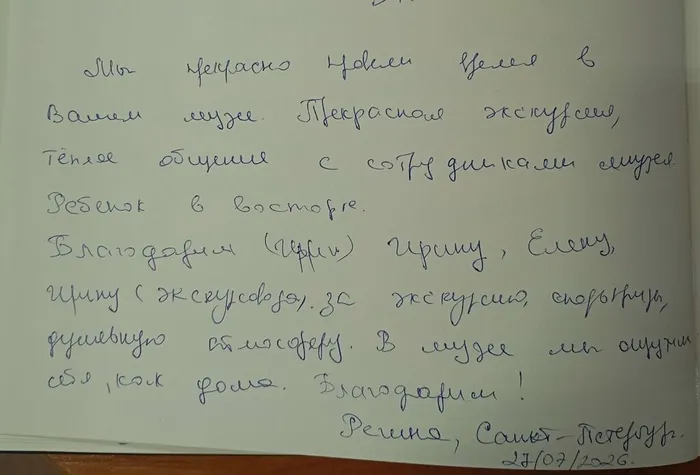 Мы прекрасно провели время в
Вашем музее. Прекрасная экскурсия,
тёплое общение с сотрудниками музея.
Ребенок в восторге.
Благодарим Ирину, Елену,
Ирину (экскурсовода). за экскурсию,
душевную атмосферу. В музее мы ощутили
себя, как дома. Благодарим!
Регина, Санкт-Петербург.
27/07/2026.